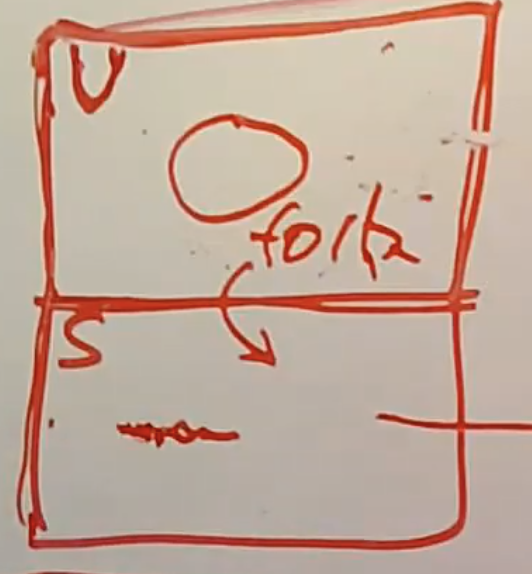 U
fork
S